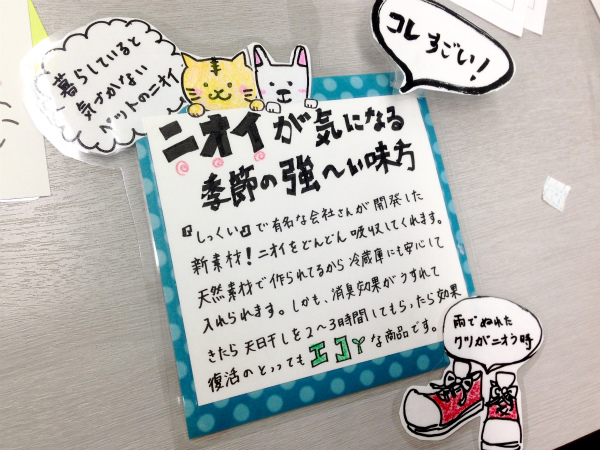 暮らしていると
気づかない
ペットのニオイ
コレすごい！
ニオイが気になる
季節の強〜い味方
『しっくい』で有名な会社さんが開発した
新素材！ニオイをどんどん吸収してくれます。
天然素材で作られてるから冷蔵庫にも安心して
入れられます。しかも、消臭効果がうすれて
きたら天日干しを2〜3時間してもらったら効果
復活のとってもエコな商品です。
雨でぬれた
クツがニオう時